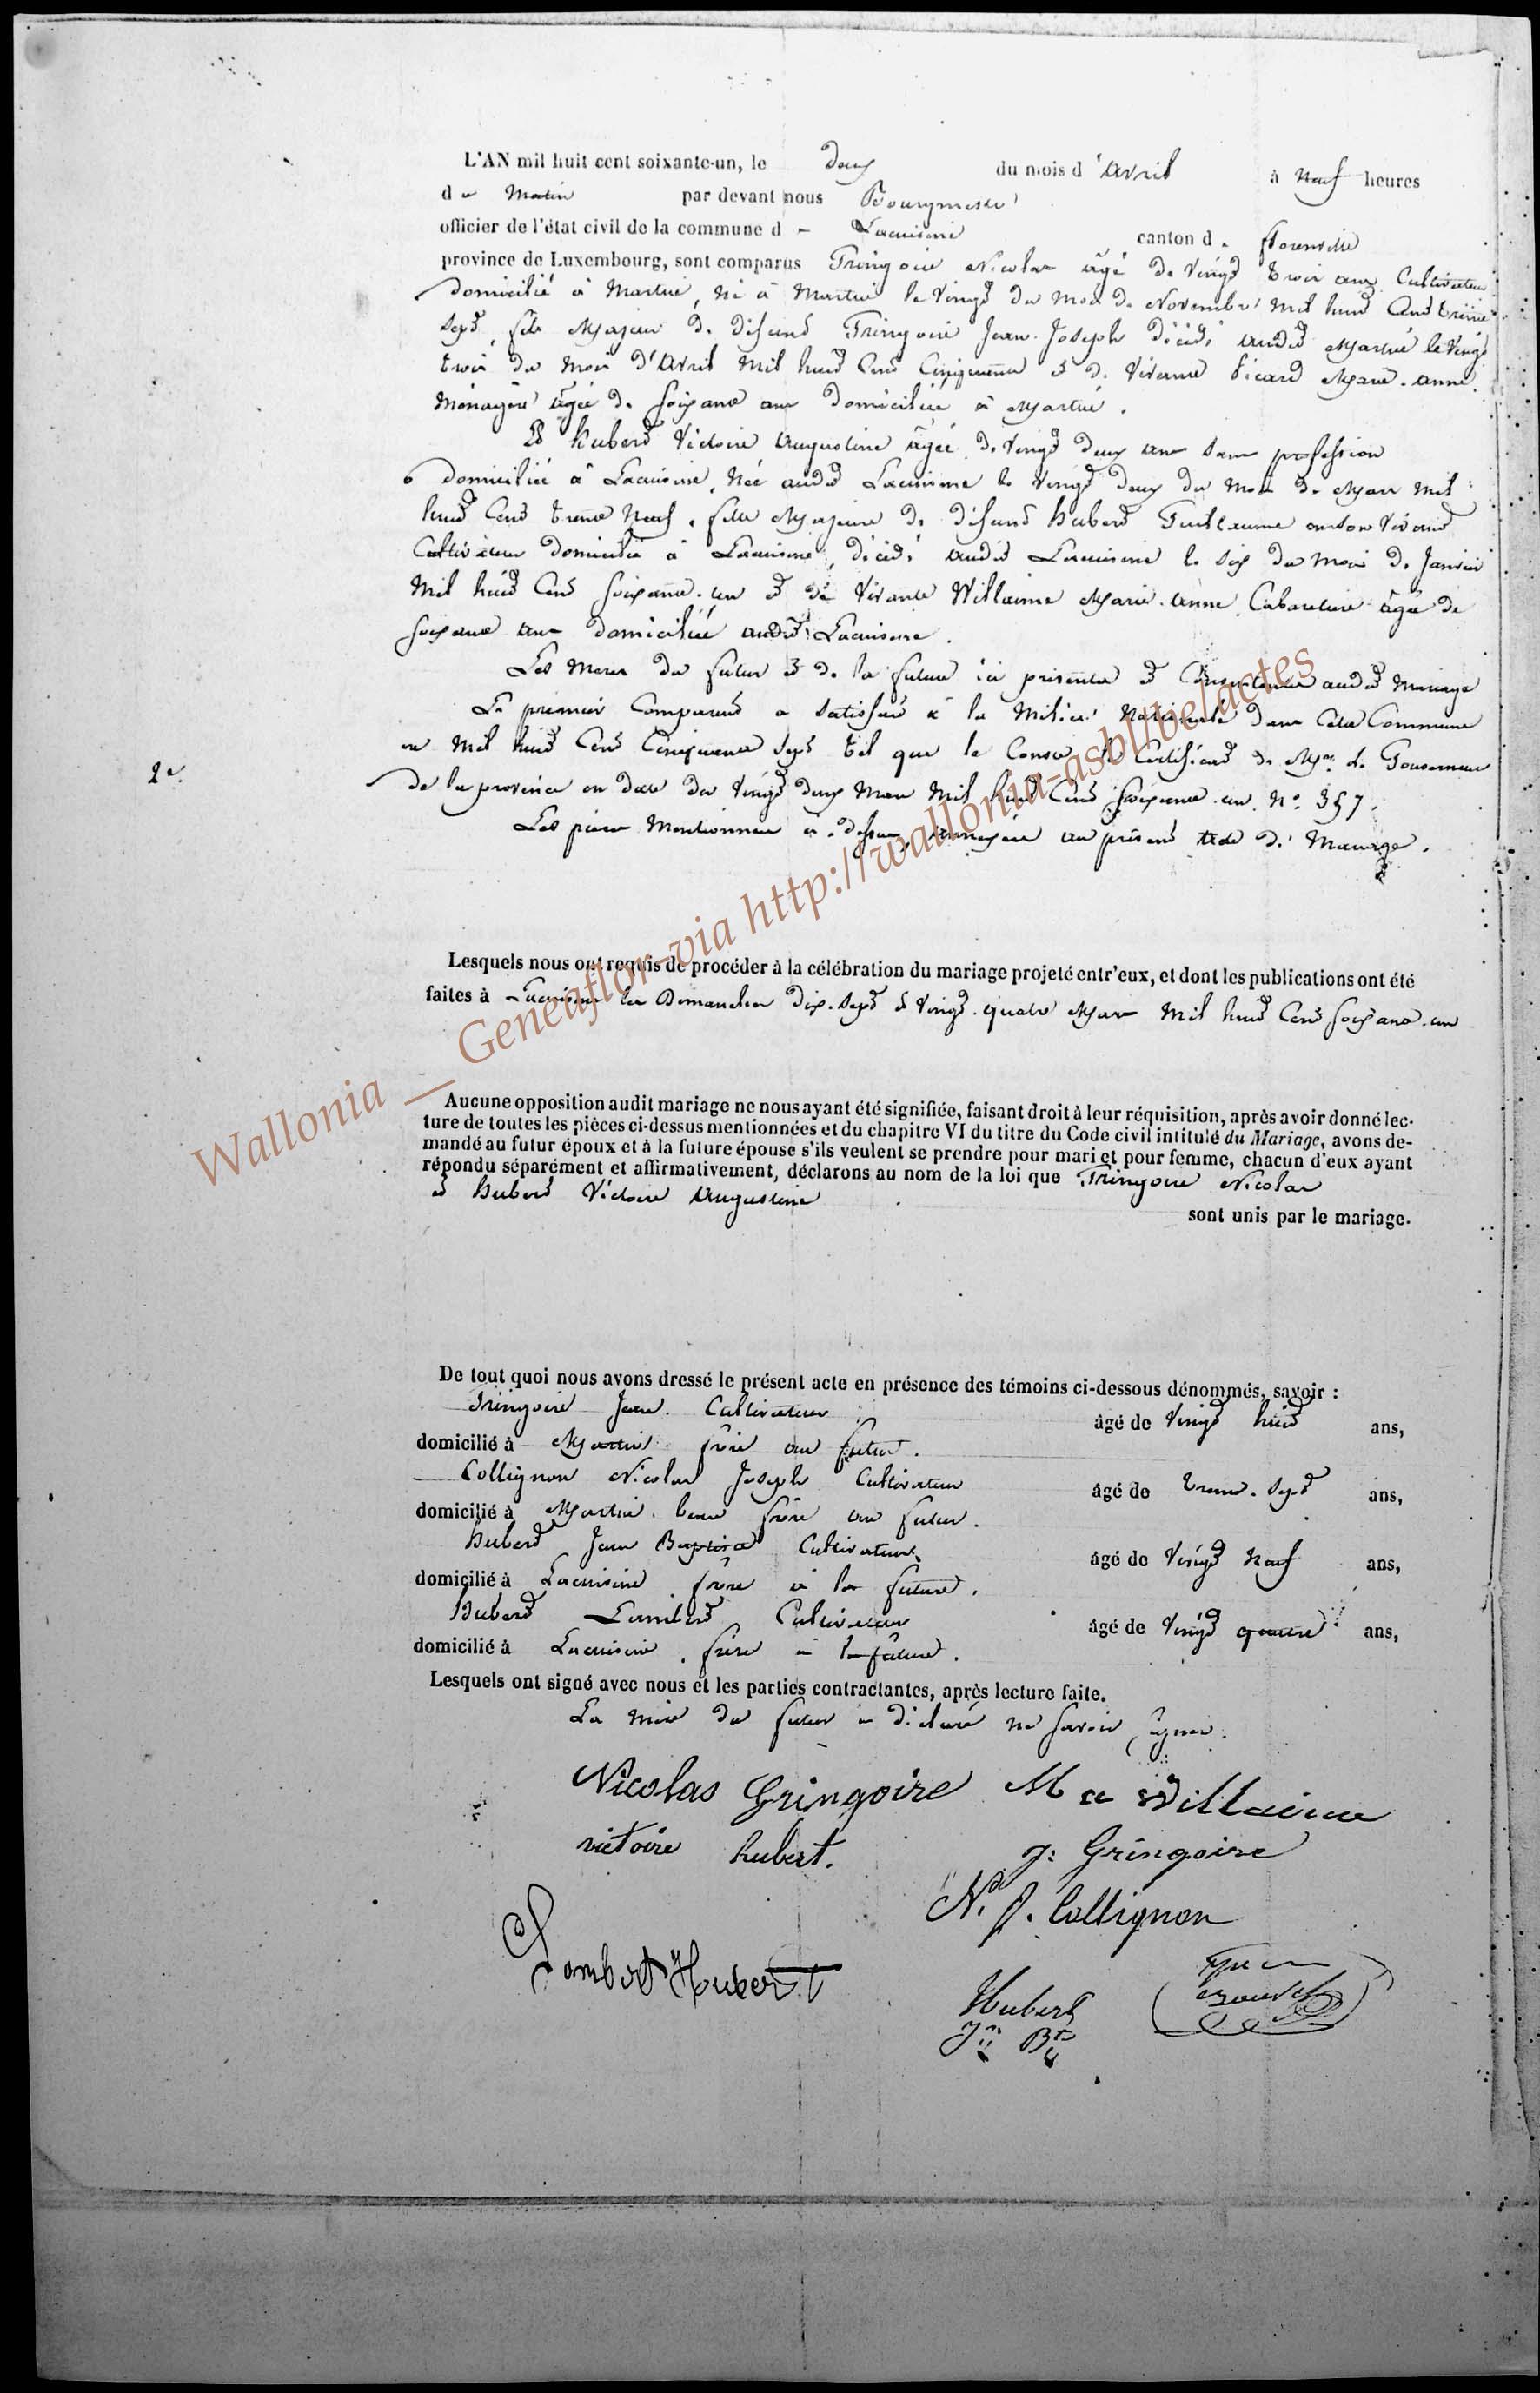 L'AN mil huit cent soixante-un, le deux du mois d'avril à neuf heures
du matin par devant nous Bourgmestre
officier de l'état civil de la commune de Lacuisine canton de florenville
province de Luxembourg, sont comparus Gringoire Nicolas âgé de vingt trois ans Cultivateur
domicilié à Martué, né à Martué le vingt du mois de Novembre mil huit Cent trente
sept, fils Majeur de défunt Gringoire Jean-Joseph décédé audit Martué le vingt
trois du mois d'avril mil huit Cent Cinquante et de vivante Picard Marie-anne
ménagère âgée de soixante ans domiciliée à Martué.
Et hubert Victoire Augustine âgée de vingt deux ans sans profession
domiciliée à Lacuisine, Née audit Lacuisine le vingt deux du mois de Mars mil
huit Cent trente Neuf, fille Majeure de défunt hubert Guillaume en son vivant
Cultivateur domicilié à Lacuisine, décédé audit Lacuisine le six du mois de Janvier
mil huit Cent soixante-un et de vivante Willaime Marie-anne Cabaretière âgée de
soixante ans domiciliée audit Lacuisine.
Les mères du futur et de la future ici présentes et Consentantes audit mariage
Le premier Comparant a satisfait à la milice Nationale dans Cette Commune
en mil huit Cent Cinquante sept tel que le Conste le Certificat de Mr. le Gouverneur
2e.
de la province en date du vingt deux Mars mil huit Cent soixante-un N° 357.
Les pièces mentionnées ci-dessus, annexées au présent acte de Mariage.
Lesquels nous ont requis de procéder à la célébration du mariage projeté entr'eux, et dont les publications ont été
faites à Lacuisine les Dimanches dix-sept et vingt-quatre Mars mil huit Cent soixante-un
Aucune opposition audit mariage ne nous ayant été signifiée, faisant droit à leur réquisition, après avoir donné lec-
ture de toutes les pièces ci-dessus mentionnées et du chapitre VI du titre du Code civil intitulé du Mariage, avons de-
mandé au futur époux et à la future épouse s'ils veulent se prendre pour mari et pour femme, chacun d'eux ayant
répondu séparément et affirmativement, déclarons au nom de la loi que Gringoire Nicolas
et hubert Victoire Augustine
sont unis par le mariage.
De tout quoi nous avons dressé le présent acte en présence des témoins ci-dessous dénommés, savoir :
Gringoire Jean Cultivateur âgé de vingt huit ans,
domicilié à Martué frère au futur.
Collignon Nicolas Joseph Cultivateur âgé de trente-sept ans,
domicilié à Martué beau frère au futur.
hubert Jean Baptiste Cultivateur âgé de vingt neuf ans,
domicilié à Lacuisine frère à la future.
Hubert Lambert Cultivateur âgé de vingt quatre ans,
domicilié à Lacuisine, frère à la future.
Lesquels ont signé avec nous et les parties contractantes, après lecture faite.
La mère du futur a déclaré ne savoir signer.
Nicolas Gringoire M a Willaime
victoire hubert. J: Gringoire
N. J. Collignon
Lambert Hubert
Hubert
Jn Bte
Wallonia __ Geneaflor-via http://wallonia-asbl/belactes